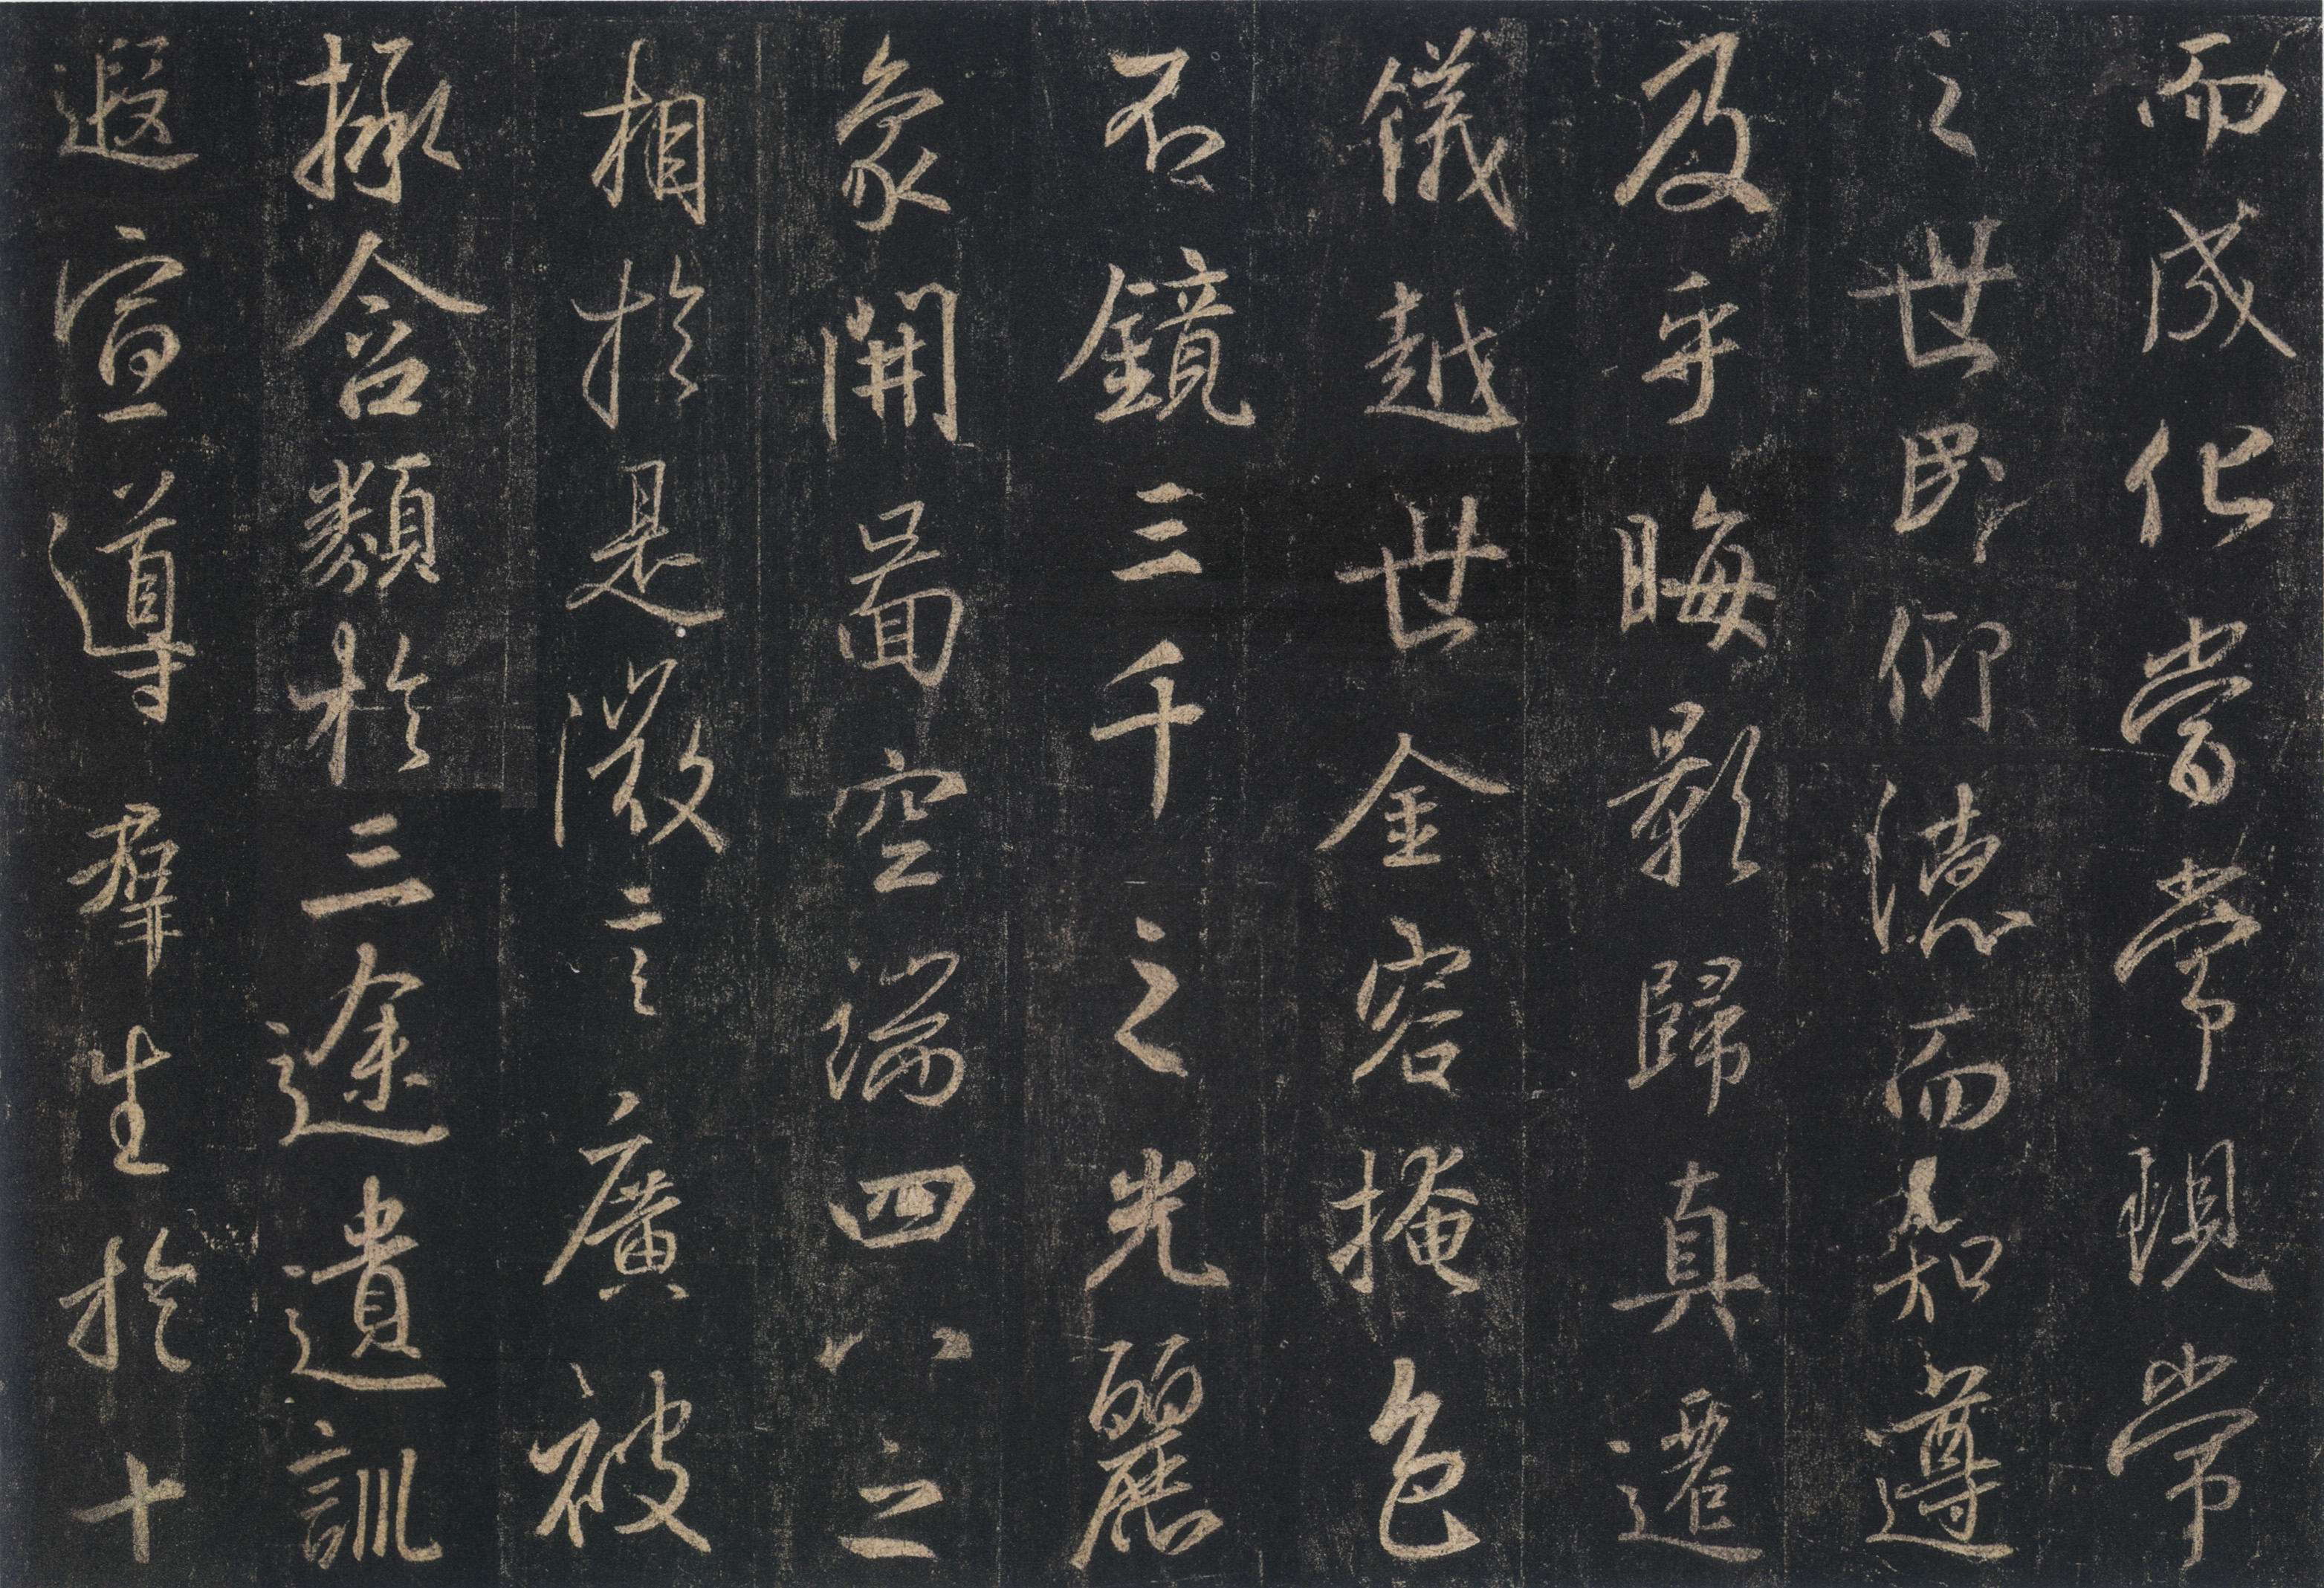 而成化當常常現常
之世民仰德而知遵
及乎晦影歸真遷
儀越世金容掩色
不鏡三千之光麗
象開圖空端四八之
相於是微言廣被
拯含類於三途遺訓
遐宣導群生於十